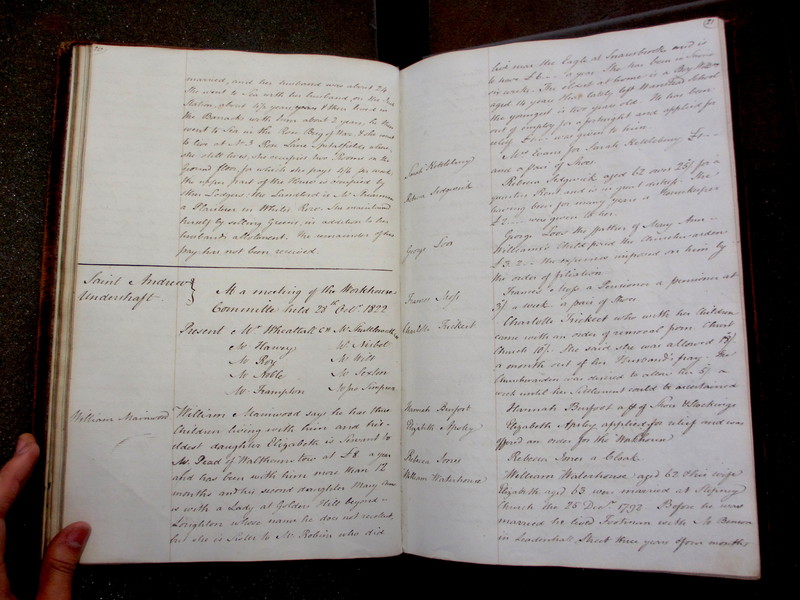 20
married, and her husband was about 24.
She went to Sea with her husband, on the
Station, about 4½ years, years & then lived in
the Barracks with him about 2 years, he then
went to Sea in the Row Brig of War, & she went
to live at No. 3 Rose Lane Spitalfields where
she still lives, she occupies two Rooms on the
Ground floor for which she pays 4/6 per week
the upper part of the House is occupied by
other Lodgers; the Landlord is Mr.
a Plumber in White's Row. She maintained
herself by selling Greens, in addition to her
husband's allotment. The remainder of his
pay has not been received.
Saint Andrew
Undershaft
At a meeting of the Workhouse
Committee held 28th Octr. 1822
Present Mr. Wheatley Mr.
Mr. Harvey W. Nisbet
Mr. Roy Mr. Wilt
Mr. Noble Mr. Sexton
Mr. Frampton Simpson
William Mainwood
William Mainwood says he has three
Children living with him and his
eldest daughter Elizabeth is Servant to
Mr. Pead of Waltham tow at £8 a year
and has been with him more than 12
months and his second daughter Mary
is with a Lady at Golden Hill beyond
Loughton whose name he does not recollect,
but she is Sister to Mr. Robins who did
21
live near the Eagle at Snaresbrook and is
to have £6 – a year. She has been
six weeks. The eldest at home is a Boy William
aged 14 years that lately left Wanstead School
the youngest is two years old. He has been
out of employ for a fortnight and applied for
relief £1 – was given to him
Sarah Kettleburg
Mrs. Evans for Sarah Kettleburg £1 –
and a pair of Shoes
Rebecca Sedgwick
Rebecca Sedgwick aged 62 owes 25/ for a
quarters Rent and is in great distress. She
having been for many years a Housekeeper
£2 – was given to her.
George Loos
George Loos the putative father of Mary Ann
Williams's Child paid the Churchwarden
£3.2 – the expences imposed on him by
the order of filiation
Frances Moss
Frances Moss a Pensioner a pensioner at
5/ a week a pair of Shoes
Charlotte Trickett
Charlotte Trickett who with her Children
came with an order of removal from Christ
Church 10/. She said she was allowed
a month out of her Husband's pay. The
Churchwarden was desired to allow her 5/ a
week until her Settlement could be ascertained
Hannah Burfoot
Hannah Burfoot a pr of Shoes & Stockings
Elizabeth Apsley
Elizabeth Apsley applied for relief and was
offered an order for the Workhouse
Rebecca Jones
Rebecca Jones a Cloak
William Waterhouse
William Waterhouse aged 62 & his wife
Elizabeth aged 63 were married at Stepney
Church the 25 Decr. 1792. Before he was
married he lived Footman with Mr.
in Leadenhall Street three years & four months